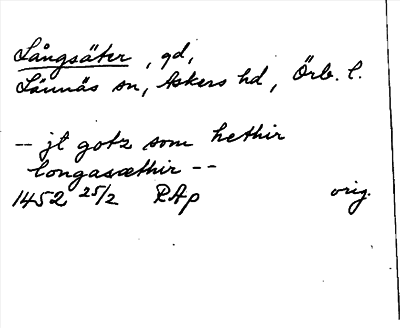 Långsäter, gd,
Lännäs sn, Askers hd, Örb. l.
-- jt gotz som hethir
longasæthir --
1452 25/2 RAp orig.